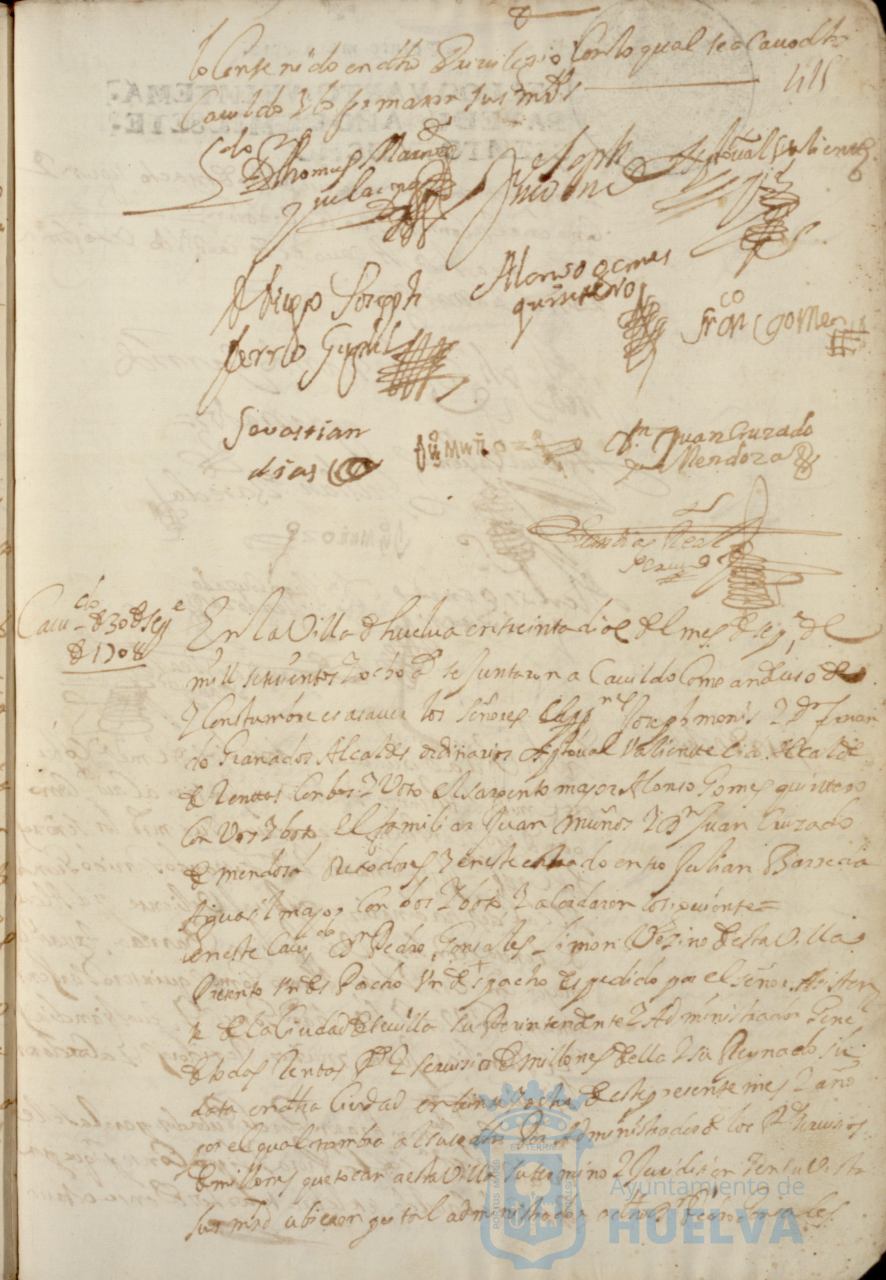 lo Contenido en dho Privilegio Con lo qual se acavo dho
Cavildo y lo firmaron sus mrds
115
Joseph
Christoual Valiente
Diego Joseph
Alonso gomes
quintero
franco gomes
Sevastian
dias
Juo Muños
Dn Juan Cruzado
de Mendoza
Cavdo de 30 de sepe
de 1708
En la Villa de huelva en treinta dias del mes de sepe de
mill setezientos y ocho as se juntaron a Cavildo Como an de uso
y Costumbre es a saver los señores Joseph monis y Dn fernan
do Granados Alcaldes ordinarios Xptoual Valiente Alcalde
de Rentas Con bos y Voto el sarjento mayor Alonso Gomes quintero
Con Vos y boto el familiar Juan Muños y Dn Juan Cruzado
de mendosa Rexidores y en este estado entro Julian Barrera
Aguasil mayor Con bos y boto y acordaron lo siguiente =
en este Cavdo Dn Pedro Gonsales Limon Vezino desta Villa
Presento Vn despacho espedido por el señor Asisten
te de la Ciudad de sevilla superintendente y Administrador Gene
de todas Rentas Rs y servisios de millones della y su Reynado su
data en dha Ciudad en beinte y ocho de este presente mes y año
por el qual nombra al suso dho por Administrador de los Rs servisios
de millones que tocan a esta Villa su termino y Juridision y en su Vista
sus mrds ubieron por tal administrador a dho Dn Pedro Gonsales
Ayuntamiento de
HUELVA